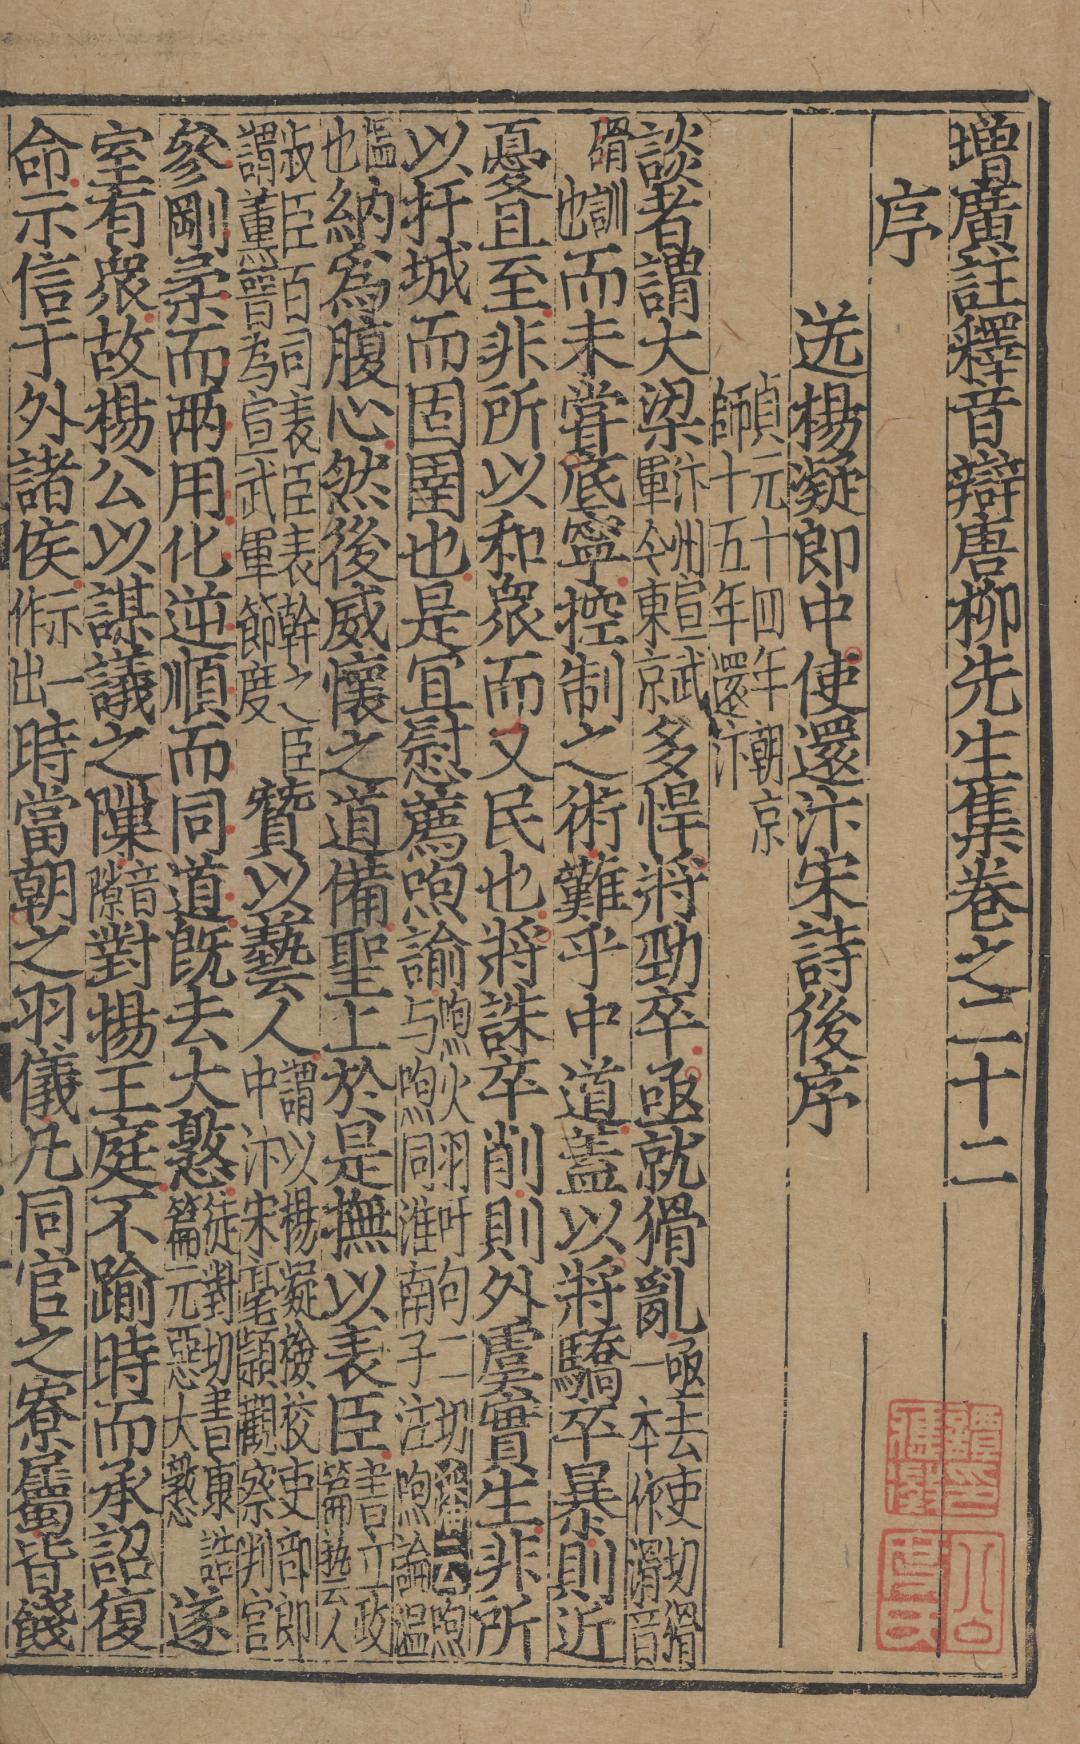 增廣註釋音辯唐柳先生集卷之二十二
序
送楊凝郎中使還汴宋詩後序
貞元十四年朝京
師十五年還汴
談者謂大梁汴州宣武軍今東京多悍將勁卒亟就猾亂亟去吏切猾一本作滑音
猾訓也而未嘗底寧控制之術難乎中道蓋以將驕卒暴則近
憂且至非所以和衆而乂民也將誅卒削則外虞實生非所
以扞城而固圉也是宜慰薦呴諭呴火羽吁句二切漢書呴与煦同淮南子注呴諭温
慍也納爲腹心然後威懷之道備聖上於是撫以表臣書立政篇藝人
表臣百司表臣表幹之臣謂董晉為宣武軍節度贊以藝人謂以楊凝檢校吏部郎中汴宋亳潁觀察判官
參剛柔而兩用化逆順而同道既去大憝徒對切書康誥篇元惡大憝遂
室有衆故楊公以謀議之隟音隙對揚王庭不踰時而承詔復
命示信于外諸侯示一作出時當朝之羽儀凡同官之寮屬皆餞